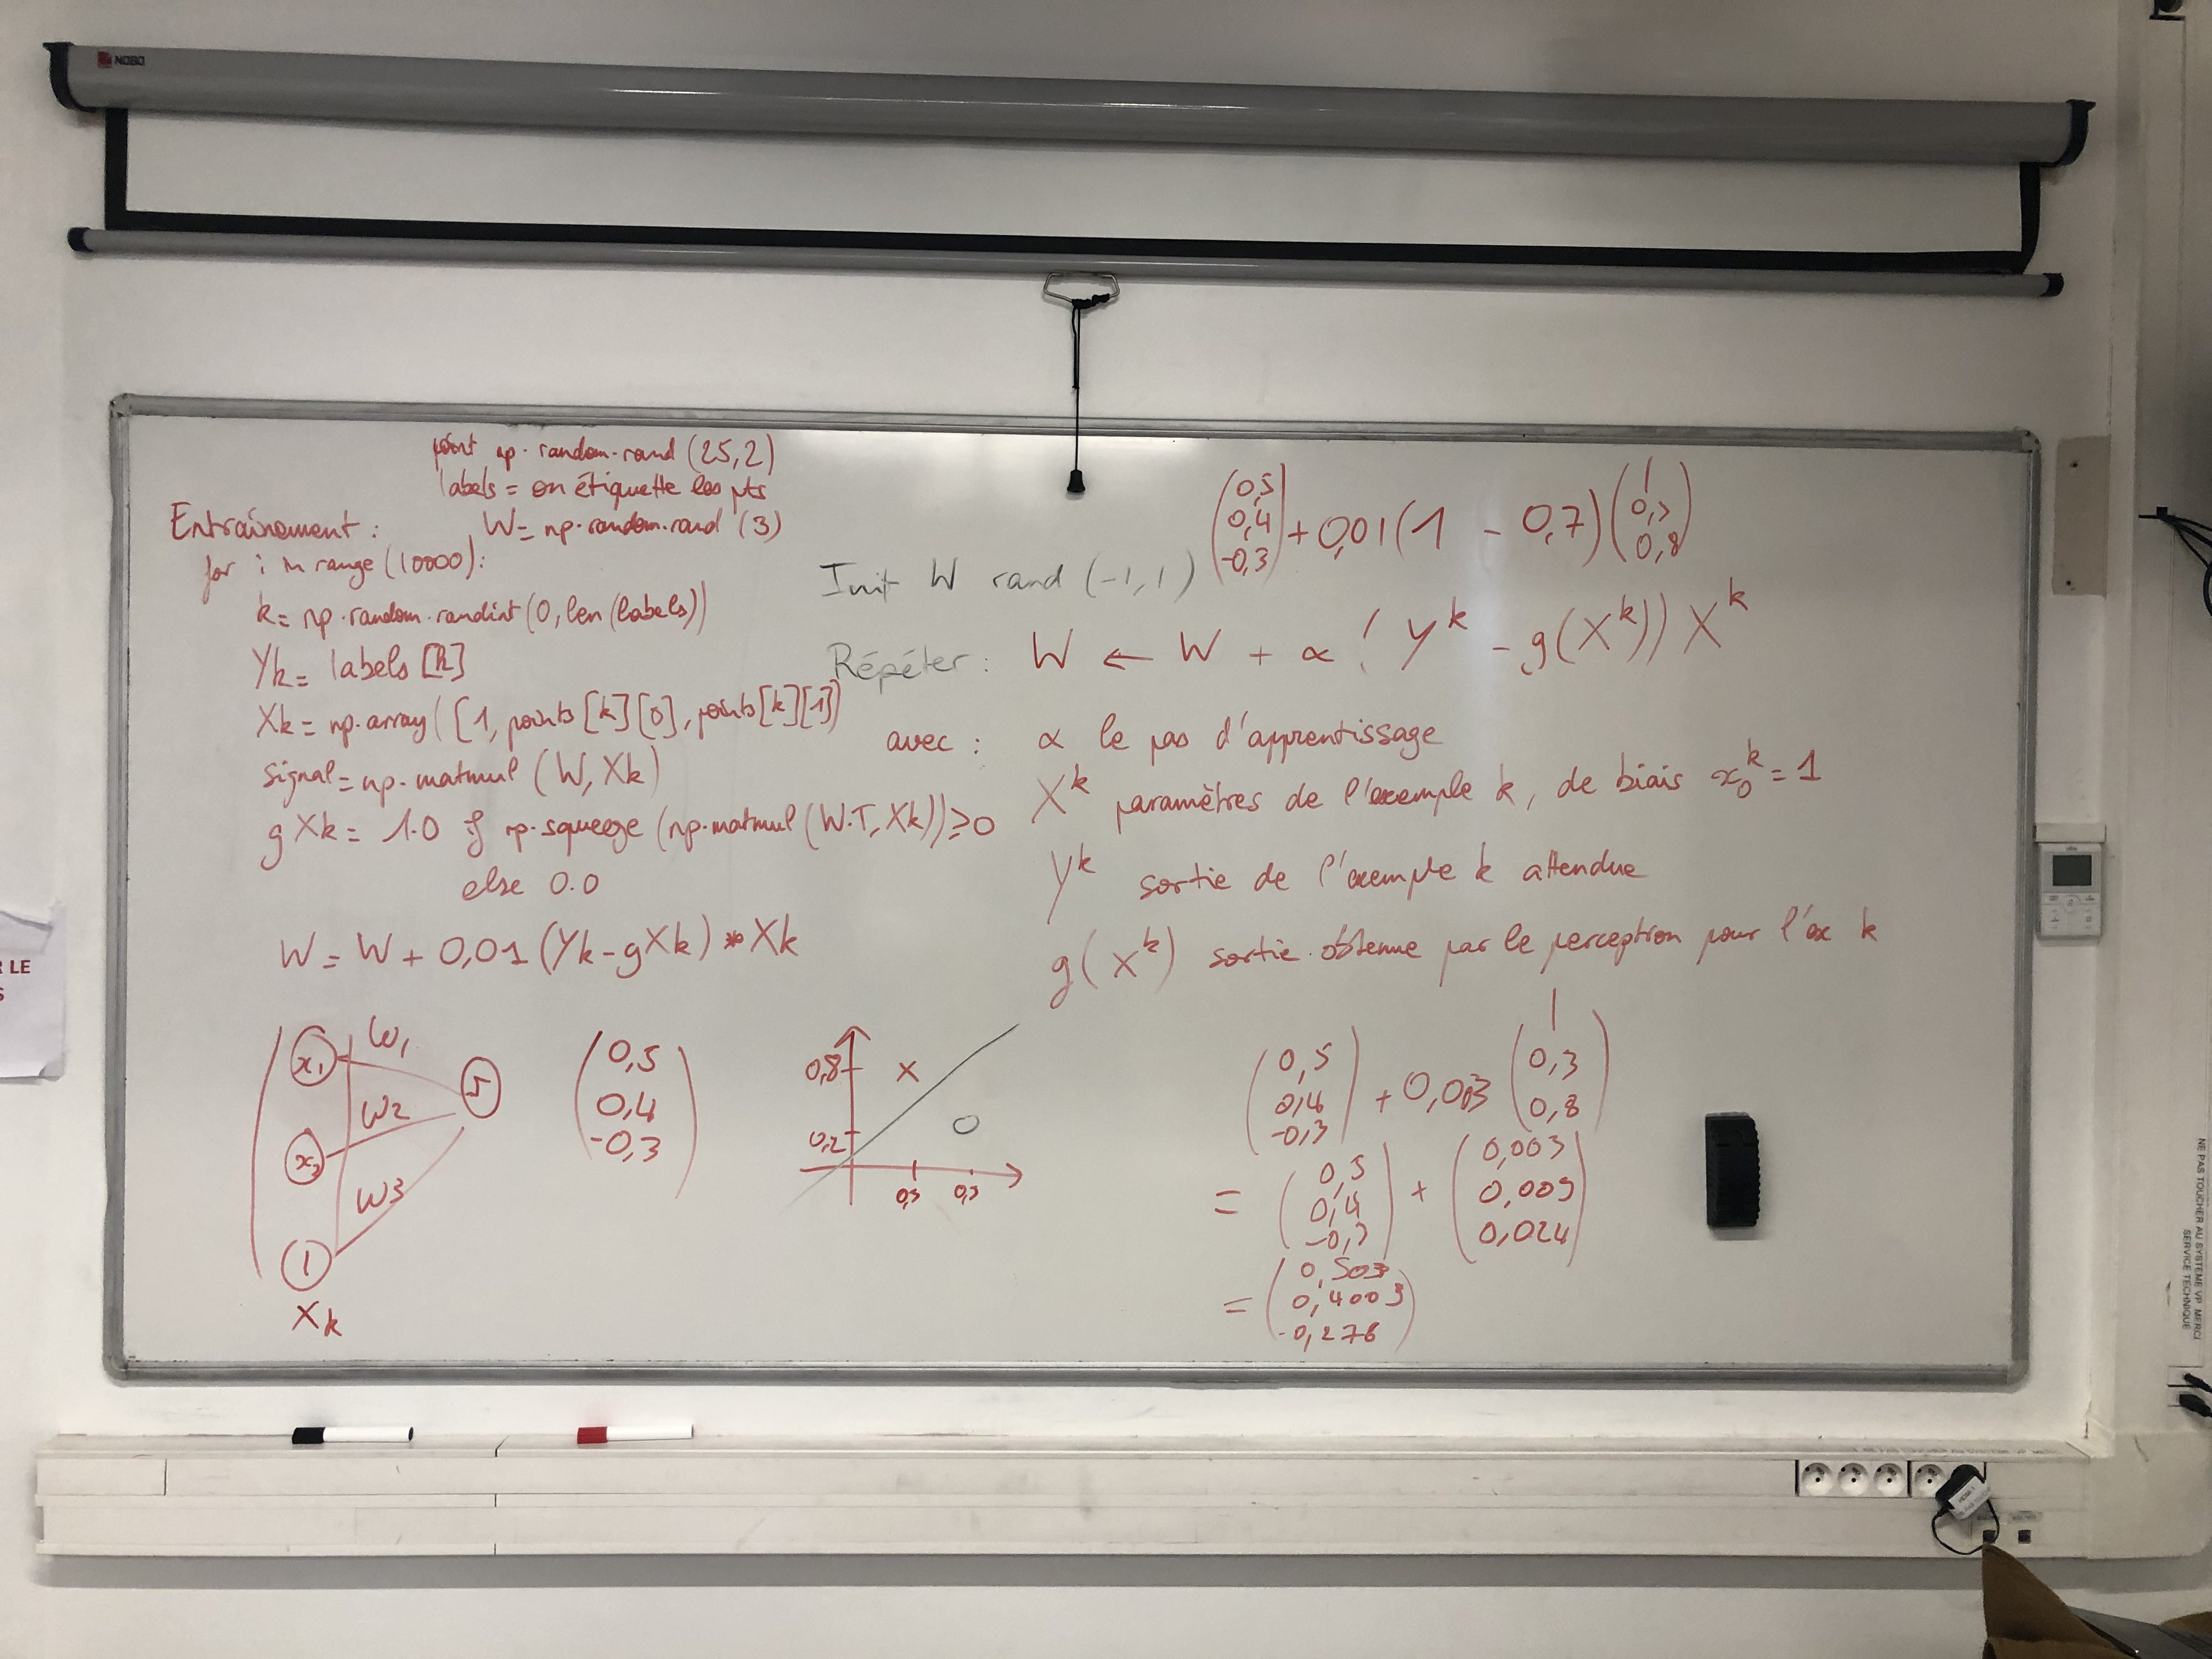 NOBO
point np.random.rand (25,2)
labels = on étiquette les pts
Entraînement :
W= np.random.rand (3)
for i in range (10000):
k= np.random.randint (0, len (labels))
Yk= labels [k]
Xk= np.array ( [1, points [k] [0], points [k] [1])
signal= np.matmul (W, Xk)
g Xk= 1.0 if np.squeeze (np.matmul (W.T, Xk)) ≥0
else 0.0
W= W + 0,01 (Yk - gXk) * Xk
x1 W1
x2 W2
1 W3
Xk
(0,5
0,4
-0,3)
0,8 x
0,2 O
(0,5
0,4
-0,3) + 0,01 (1 - 0,7) (1
0,3
0,8)
Init W rand (-1, 1)
Répéter : W ← W + α ( Y^k - g(X^k)) X^k
avec : α le pas d'apprentissage
X^k paramètres de l'exemple k, de biais x_0^k = 1
Y^k sortie de l'exemple k attendue
g(X^k) sortie obtenue par le perceptron pour l'ex k
(0,5
0,4
-0,3) + 0,003 (1
0,3
0,8)
= (0,5
0,4
-0,3) + (0,003
0,009
0,024)
= (0,503
0,4003
-0,276)
LE
S
NE PAS TOUCHER AU SYSTEME VP MERCI
SERVICE TECHNIQUE